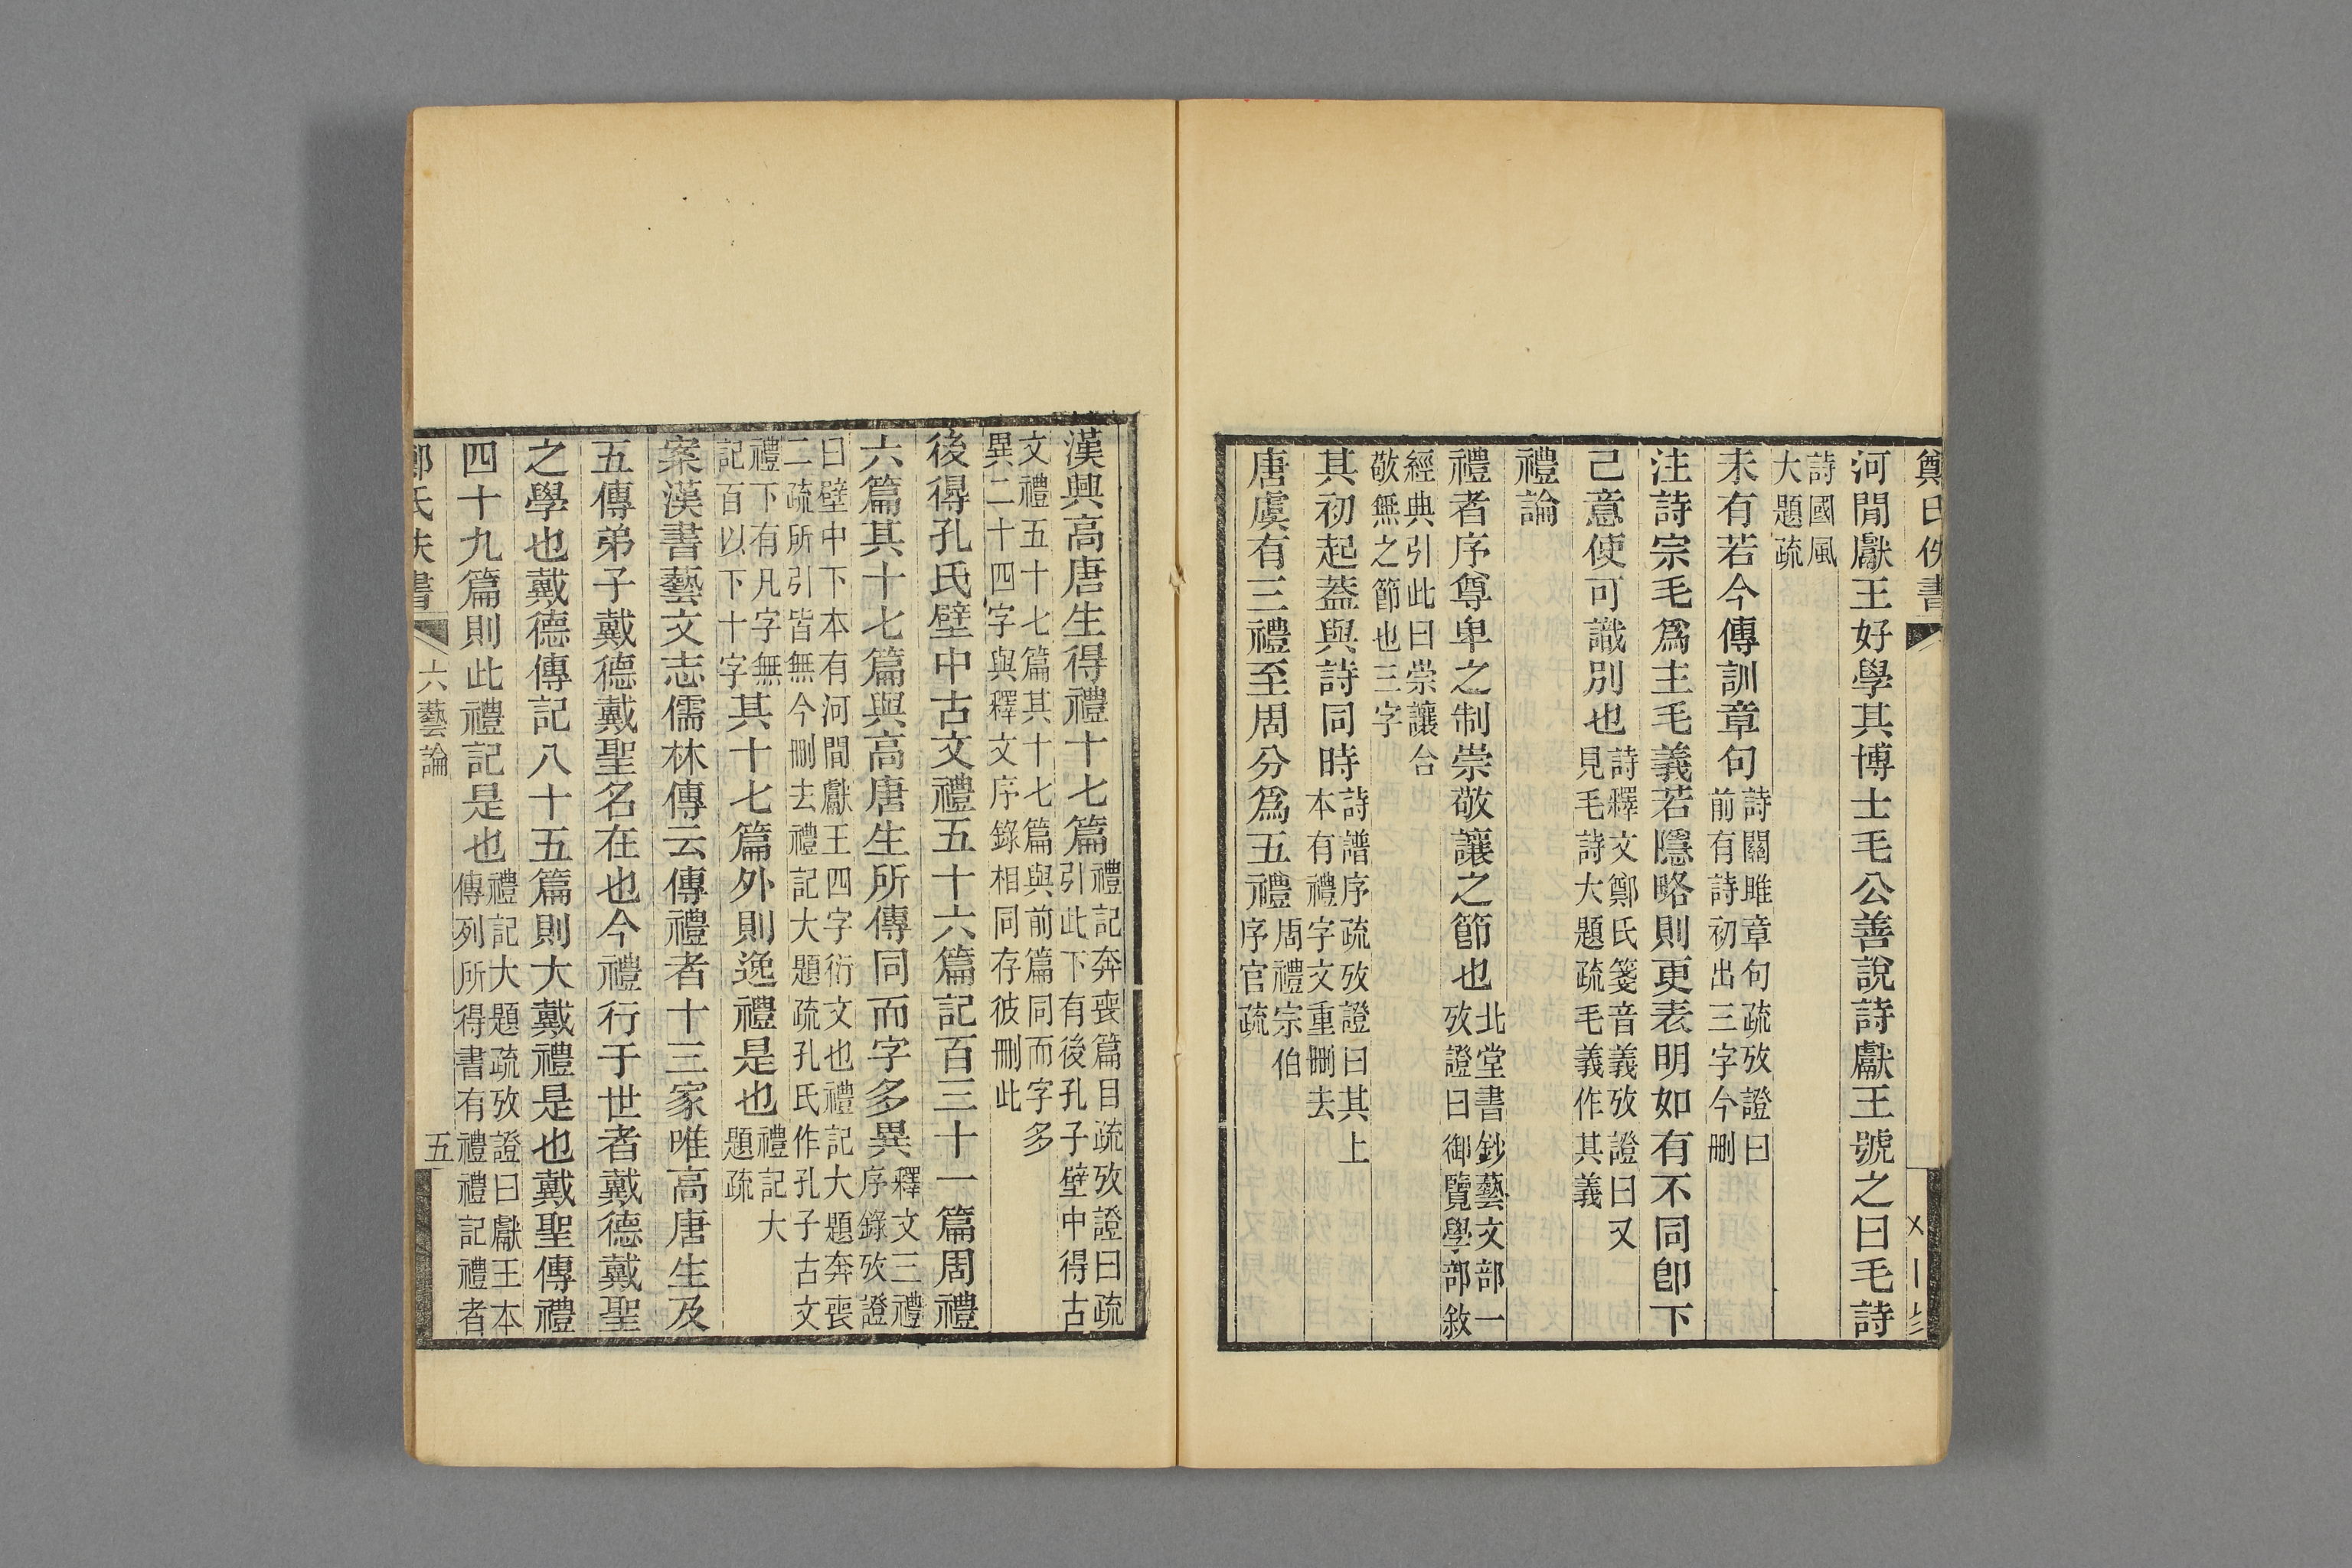 鄭氏佚書
河閒獻王好學其博士毛公善說詩獻王號之曰毛詩
詩國風
大題疏
未有若今傳訓章句
詩關雎章句疏攷證曰
前有詩初出三字今刪
注詩宗毛爲主毛義若隱略則更表明如有不同卽下
己意使可識別也
詩釋文鄭氏箋音義攷證曰又
見毛詩大題疏毛義作其義
禮論
禮者序尊卑之制崇敬讓之節也
北堂書鈔藝文部一
攷證曰御覽學部敘
經典引此曰崇讓台
敬無之節也三字
其初起葢與詩同時
詩譜序疏攷證曰其上
本有禮字文重刪去
唐虞有三禮至周分爲五禮
周禮宗伯
序官疏
漢興高唐生得禮十七篇
禮記奔喪篇目疏攷證曰疏
引此下有後孔子壁中得古
文禮五十七篇其十七篇與前篇同而字多
異二十四字與釋文序錄相同存彼刪此
後得孔氏壁中古文禮五十六篇記百三十一篇周禮
六篇其十七篇與高唐生所傳同而字多異
釋文三禮
序錄攷證
曰壁中下本有河閒獻王四字衍文也禮記大題奔喪
二疏所引皆無今刪去禮記大題疏孔氏作孔子古文
禮下有凡字無
記百以下十字
其十七篇外則逸禮是也
禮記大
題疏
案漢書藝文志儒林傳云傳禮者十三家唯高唐生及
五傳弟子戴德戴聖名在也今禮行于世者戴德戴聖
之學也戴德傳記八十五篇則大戴禮是也戴聖傳禮
四十九篇則此禮記是也
禮記大題疏攷證曰獻王本
傳列所得書有禮禮記禮者
鄭氏佚書
六藝論
五